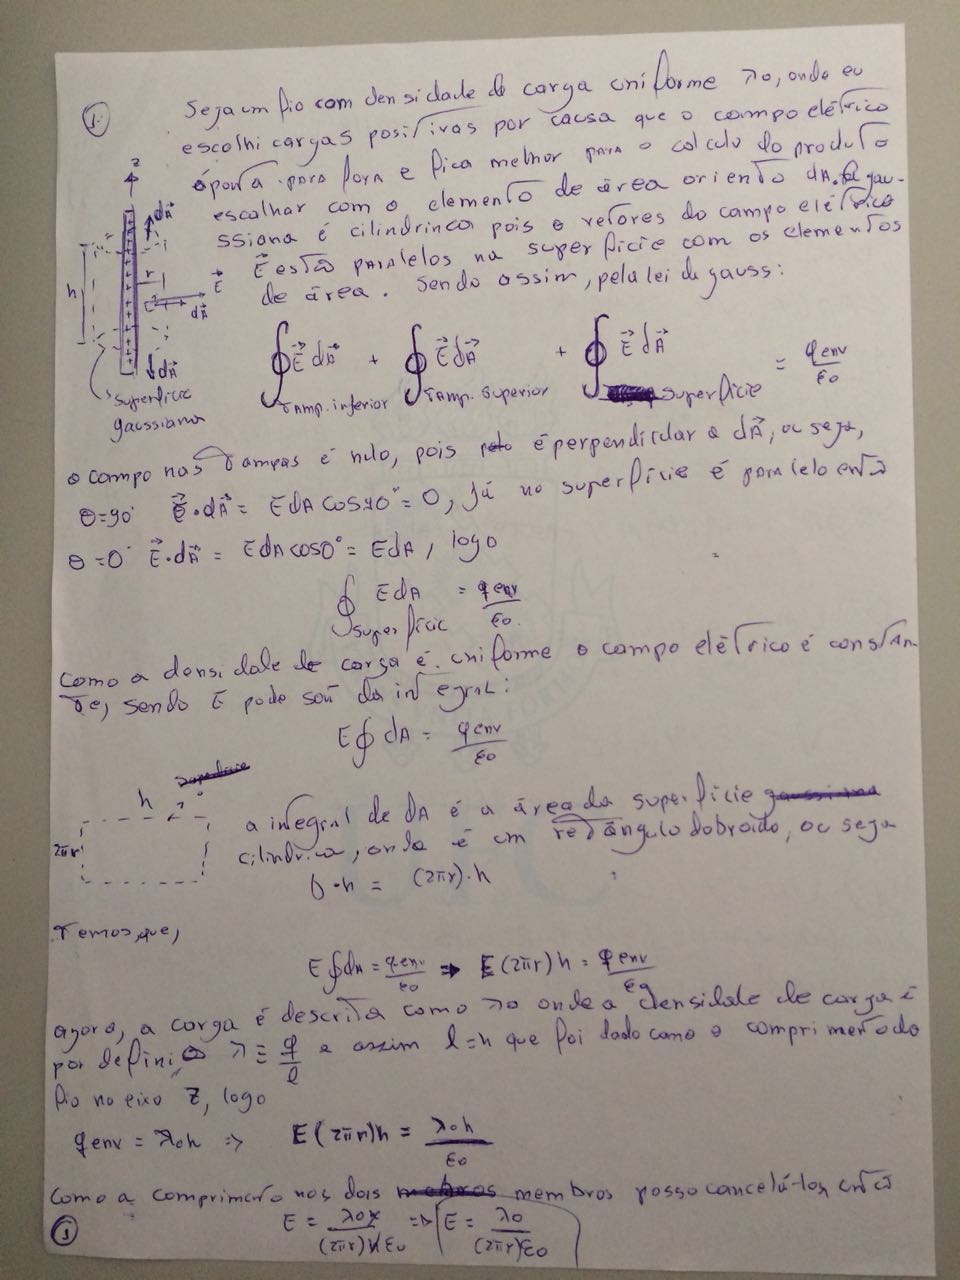 1.
Seja um fio com densidade de carga uniforme λo, onde eu
escolhi cargas positivas por causa que o campo elétrico
aponta para fora e fica melhor para o calculo do produto
escalhar com o elemento de área oriento dA. A gau-
ssiana é cilindrinca pois o vetores do campo elétrico
E⃗ estão paralelos na superfície com os elementos
de área. Sendo assim, pela lei de gauss:
z
dA⃗
h
r
E⃗
dA⃗
dA⃗
superfície
gaussiana
∮ E⃗ dA⃗ + ∮ E⃗ dA⃗ + ∮ E⃗ dA⃗ = qenv/ε0
Tamp. inferior Tamp. superior superfície
o campo nas Tampas é nulo, pois é perpendicular a dA⃗, ou seja,
θ=90° E⃗·dA⃗ = EdA cos90° = 0, já na superfície é paralelo então
θ=0° E⃗·dA⃗ = EdA cos0° = EdA, logo
∮ EdA = qenv/ε0.
superfície
Como a densidade de carga é uniforme o campo elétrico é constan-
te, sendo E pode sair da integral:
E∮dA = qenv/ε0
h
2πr
a integral de dA é a área da superfície
cilindrica, onde é um retângulo dobrado, ou seja
b·h = (2πr)·h
Temos, que,
E∮dA = qenv/ε0 ⇒ E(2πr)h = qenv/ε0
agora, a carga é descrita como λo onde a densidade de carga é
por definição λ ≡ q/l e assim l=h que foi dado como o comprimento do
fio no eixo Z, logo
qenv = λoh ⇒ E(2πr)h = λoh/ε0
Como a comprimento nos dois membros posso cancelá-los, então
E = λoh/(2πr)hε0 ⇒ E = λo/(2πr)ε0
1